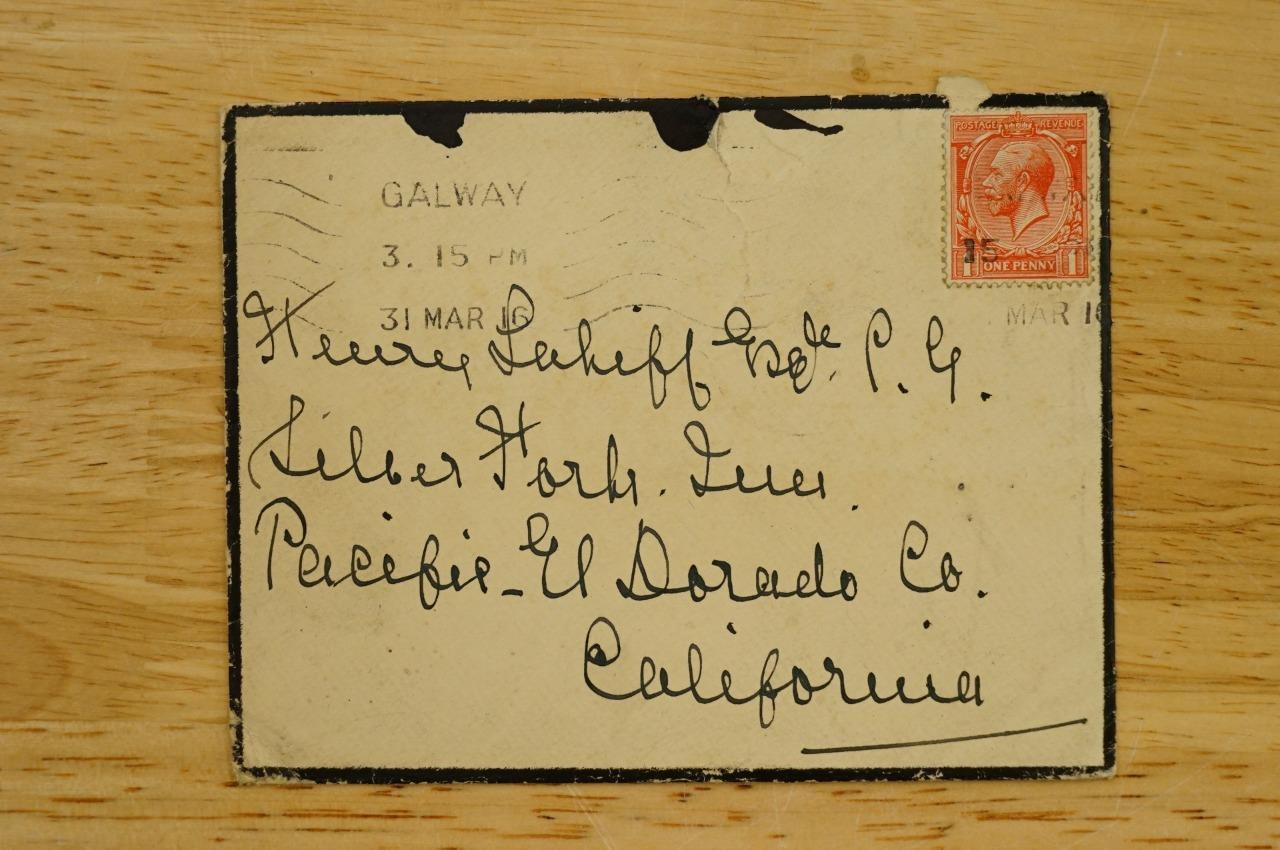 POSTAGE REVENUE
15
1 ONE PENNY 1
MAR 16
GALWAY
3. 15 PM
31 MAR 16
Henry Lahiff Esqre. P. G.
Silver Fork. Inn.
Pacific - El Dorado Co.
California